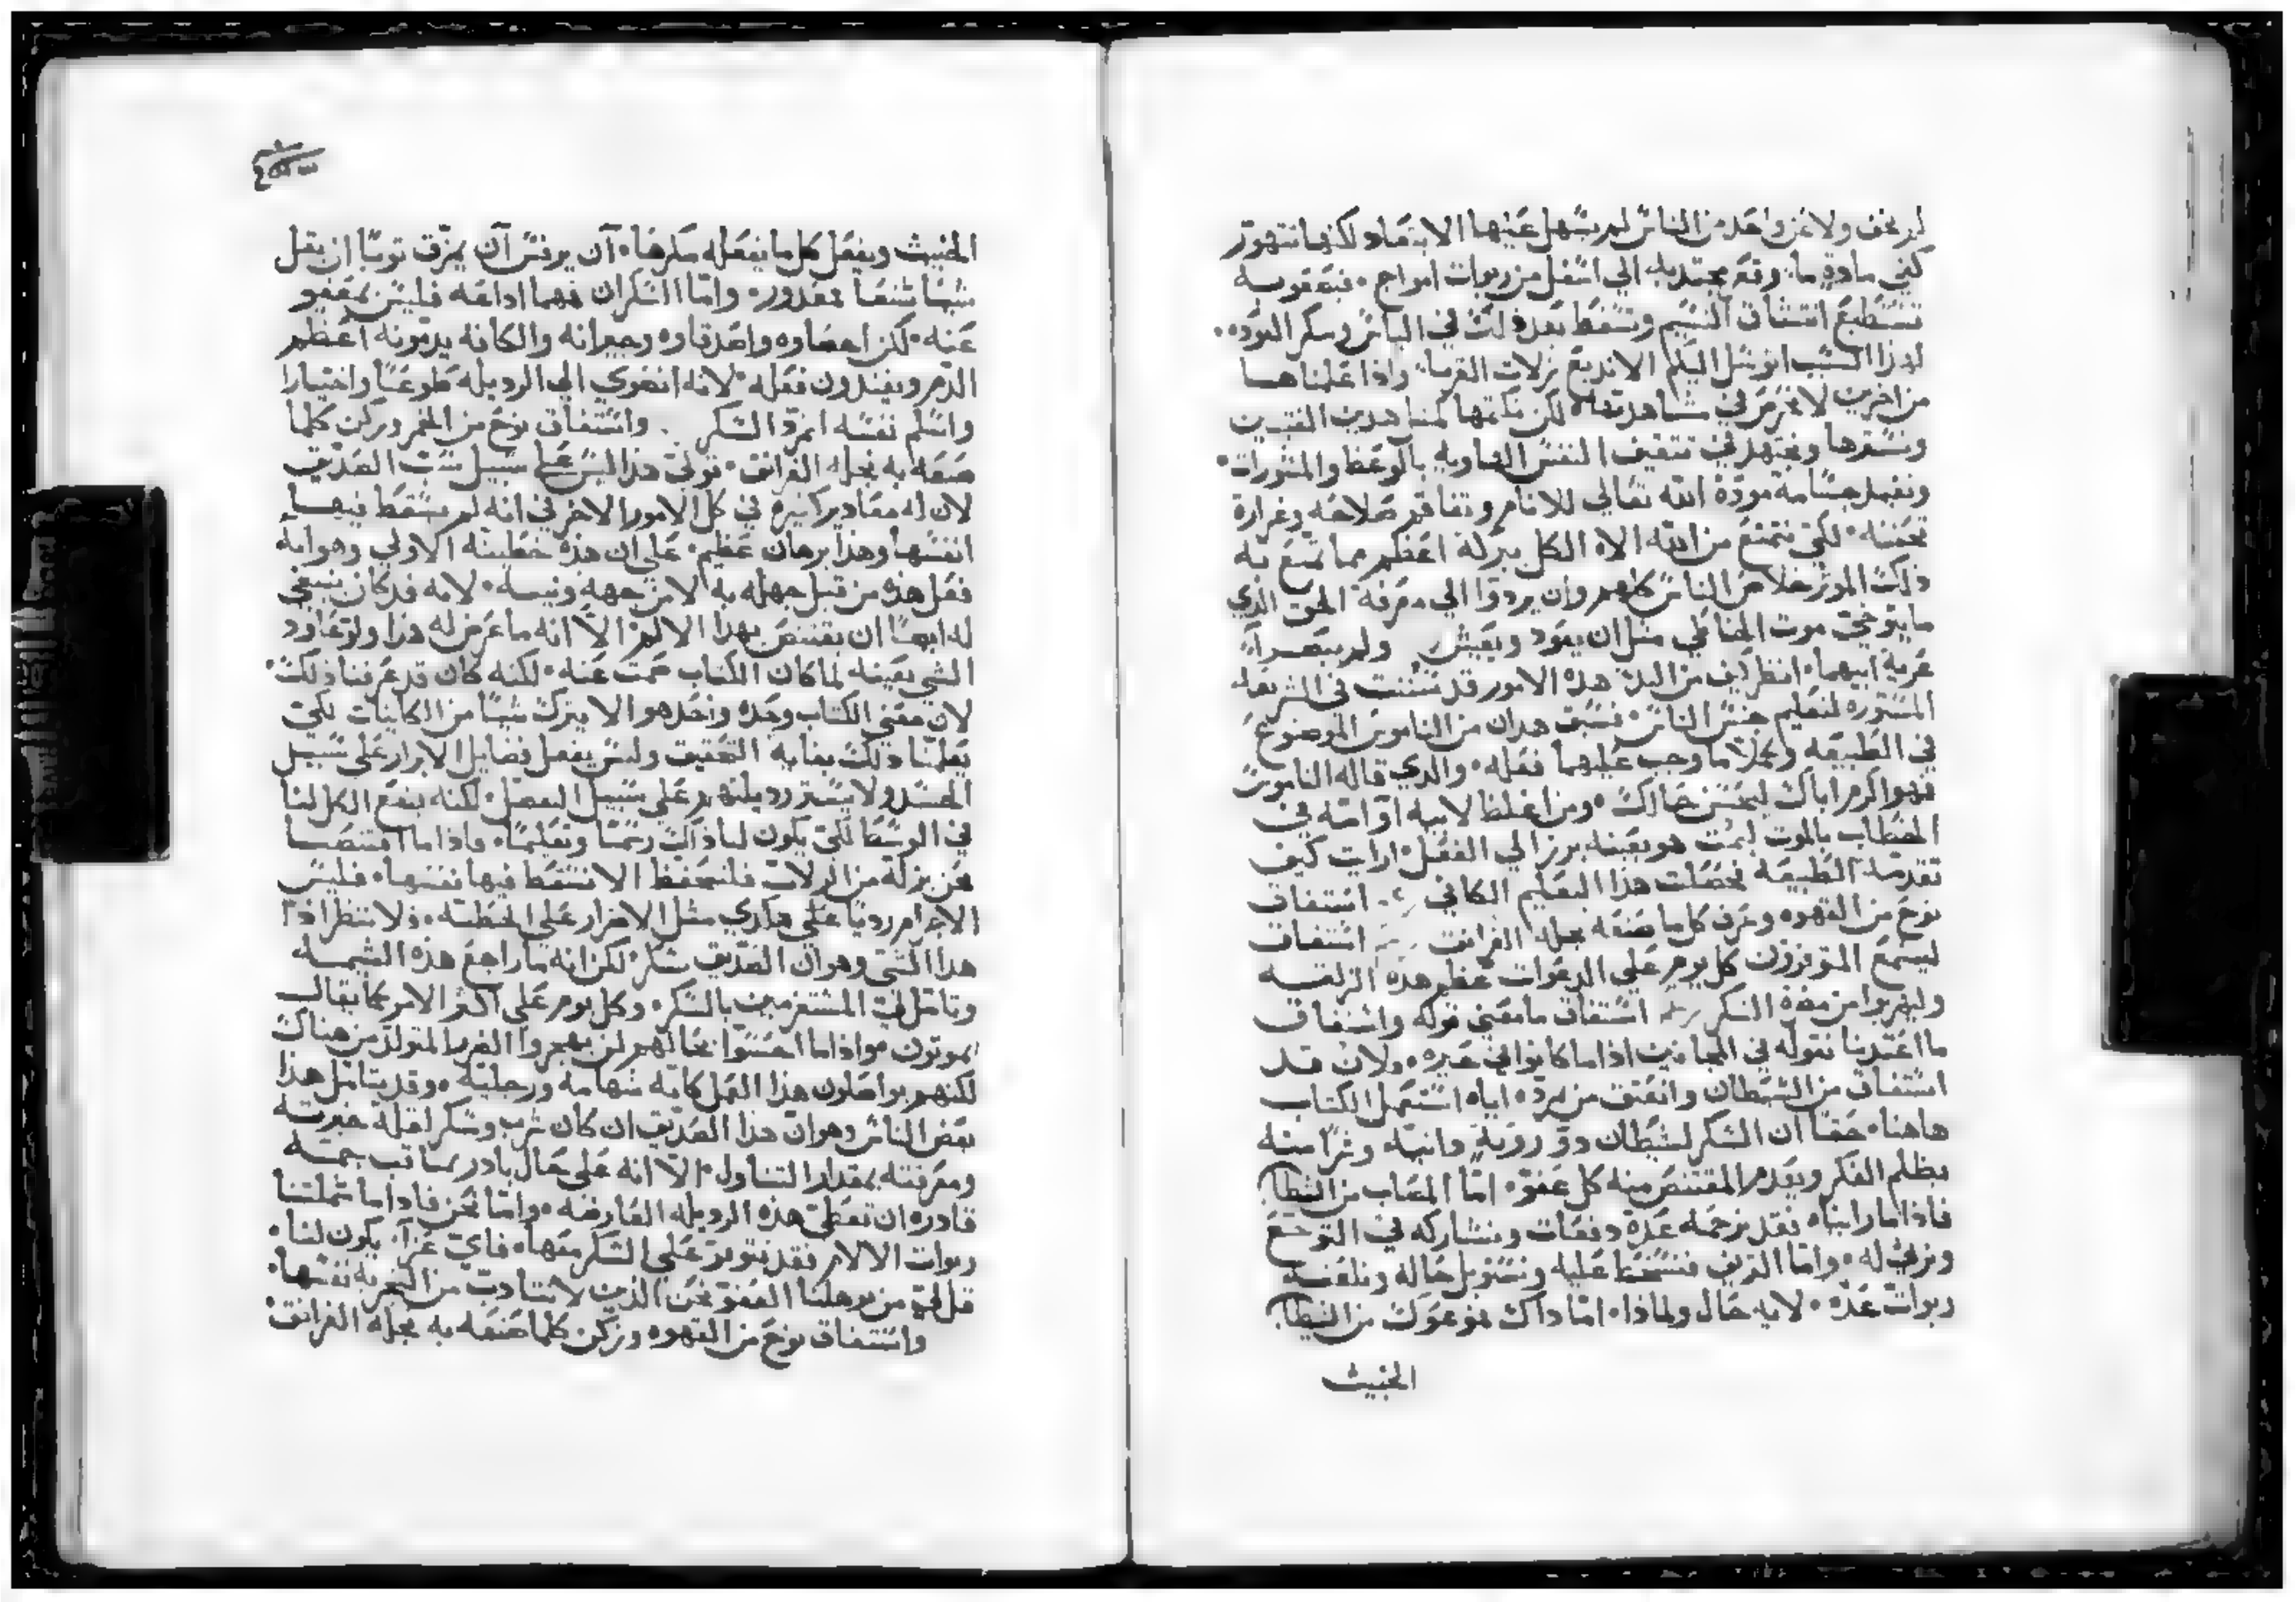 لم نخف ولا عن واحد من الناس لم يسهل عنها الابتعاد لكنها تتهور
كفي مادة ما وقع يجتذبه الي اسفل من ربوات امواج فبعقوبة
تستطيع انتشاق النسيم وتسقط بعد ذلك في الباس وسكر
لهذا السبب اتوسل اليكم الا نذيع زلات القريب واذا علمناها
من اخرين لا نحرص في مشاهدتها لكن نكتمها كمشاهدين
ونسترها ونجتهد في تثقيف النفس الهاوية بالوعظ والمشورات
جسامة مودة الله تعالي للانام وتفاقم صلاحه وغزارة
تحننه لكي نتمتع من الله الاه الكل ببركة اعظم مما تمتع به
ذلك الموثر خلاص الناس كلهم وان يردوا الي معرفة الحق الذي
ما يتوخي موت الخاطي مثل ان يعود ويعيش ولم يبصرا
عرية ابيهما انظر كيف من البدء هذه الامور قد سننت في الشريعة
المستورة لتعليم جنس الناس فسبق هذان من الناموس الموضوع
في الطبيعة وكملا ما وجب عليهما فعله والذي قاله الناموس
فهو اكرم اباك ليحسن حالك ومن اغلظ لابيه او امه في
الخطاب بالموت ليمت هو بعينه برز الي الفعل ارايت كيف
تقدمة الطبيعة حصلت هذا التعليم الكافي استفاق
نوح من القهوه وعرف كلما صنعه نجله الفرانق استفاق
ليسمع المتوفرون كل يوم علي الدعوات عظم هذه الزلقه
وليهربوا من مضرة السكر استفاق ما معني قوله واستفاق
ما اعتدنا نقوله في المجانين اذا ما كانوا في حيره ولان قد
استفاق من الشيطان وانعتق من اياه استعمل الكتاب
هاهنا حقا ان السكر لشيطان ذو روية دانيه وشرا منه
يظلم الفكر ويعدم المقتنص منه كل عفو اما المصاب من الشيطان
فاذا ما رايناه فقد نرحمه عدة دفعات ونشاركه في التوجع
ونرثي له واما النزيف فنسخط عليه ونستوبل حاله ونلعنه
ربوات عده لايه حال ولماذا اما داك فموعوك من الشيطان
الخبيث
الخبيث ويفعل كل ما يفعله مكرها ان يرفس ان يمزق ثوبا ان يقل
شيا شنعا فمعذور واما السكران فمهما اذاعه فليس بمعفو
عنه لكن اعضاوه واصدقاوه وجيرانه والكافه يذمونه اعظم
الذم ويفندون فعله لانه انضوي الي الرديله طوعا واختيارا
واسلم نفسه السكر واستفاق نوح من الخمر وركن كلما
صنعه به نجله الفرانق نولي هذا ليس علي سبيل ثلب الصديق
لان له معاذير كثيره في كل الامور الاخر في انه لم يسقط فيها
انفسها وهذا برهان عظيم علي ان هذه خطيته الاولي وهوانه
فعل هذه من قبل جهله به لا من جهة ونيسه لانه قد كان ينبغي
له ايضا ان يقتنص بهذا الالم الا انه ما عرض له هذا ولو عاود
الشي بعينه لما كان الكتاب صمت عنه لكنه كان قد عرفنا ذلك
لان معني الكتاب وحده واحد هو الا يترك شيا من الكاينات لكي
يعلمنا ذلك بغاية التحقيق وليس يفعل فضايل الابرار علي سبيل
الحسد ولا يستر رديلتهم علي سبيل التفضل لكنه يضع الكل لنا
في الوسط لكي يكون لنا ذاك رسما وتعليما فاذا ما اقتنصنا
نحن بزلة من الزلات فلنحتفظ الا نسقط فيها نفسها فليس
الاجرام رديا علي هذي مثل الاصرار علي الخطيه فلا تنظر اذا
هذا الشي وهو ان الصديق سكر لكن انه ما راجع هذه الشيمه
وتامل لي المستغرمين بالسكر وكل يوم علي اكثر الامر كما يقال
يموتون واذا ما احسنوا بحالهم لن يهجروا الضرر المتولد من هناك
لكنهم يواصلون هذا العمل كانه شهامة ورجليه وقد يتامل هذا
بعض الناس وهو ان هذا الصديق ان كان شرب وسكر لقلة خبرته
ومعرفته بمقدار التناول الا انه علي حال بادر بمناقب جمة
قادره ان تغطي هذه الرديله العارضه واما نحن فاذا ما شملتنا
ربوات الالام فقد نتوفر علي السكر معها فاي عزا يكون لنا
قل لي من يوهلنا للعفو نحن الذين لا نتادب من التجربة نفسها
واستفاق نوح من القهوه وركن كلما صنعه به نجله الفرانق